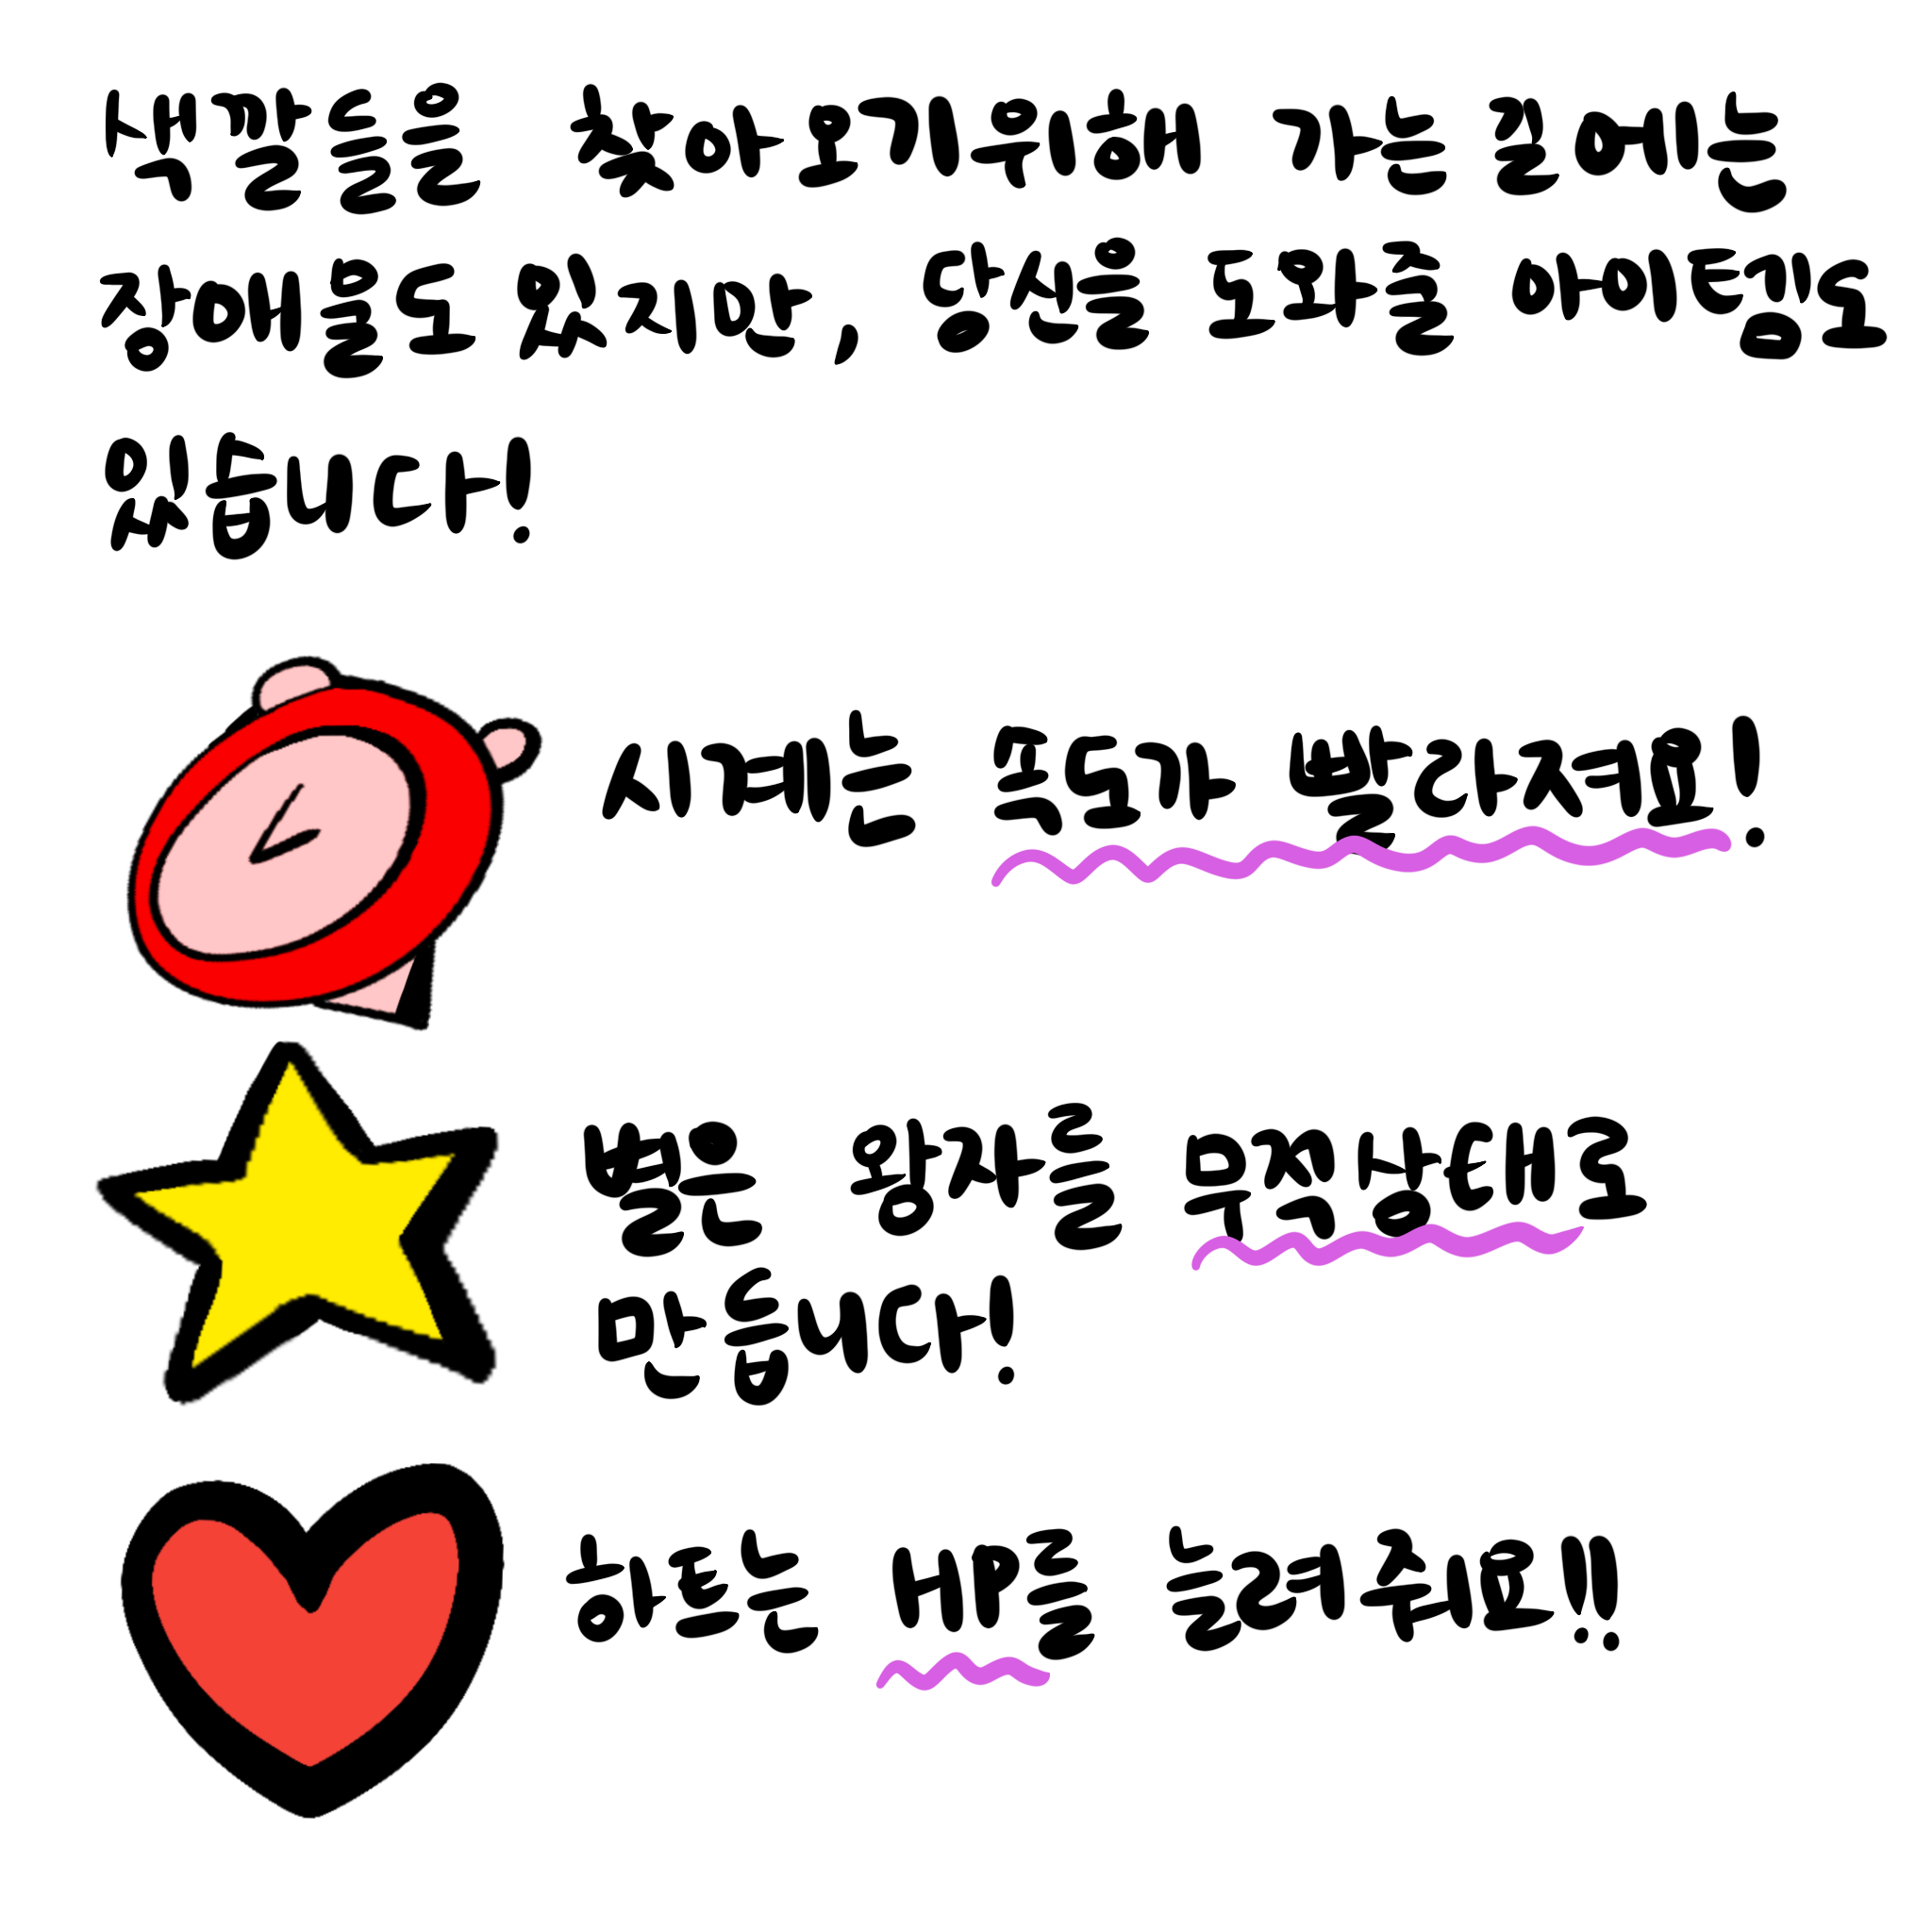 색깔들을 찾아 오기위해 가는 길에는
장애물도 있지만, 당신을 도와줄 아이템도
있습니다!
시계는 속도가 빨라져요!
별은 왕자를 무적상태로
만듭니다!
하트는 HP를 늘려줘요!!